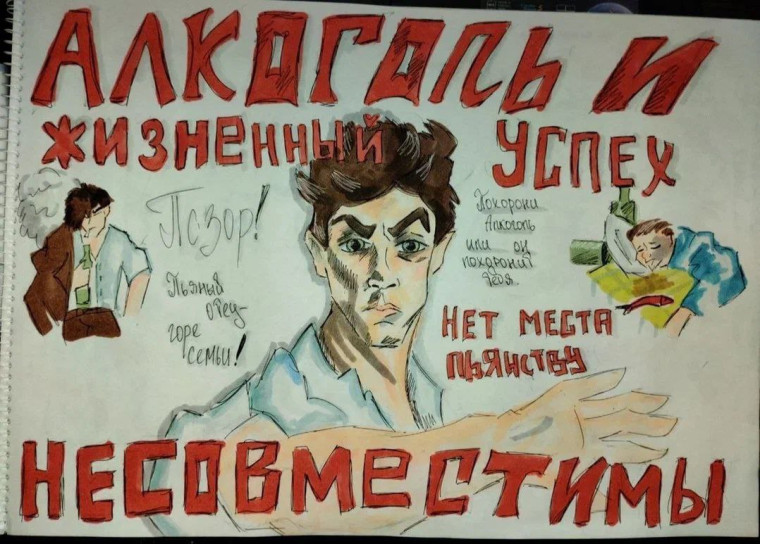 АЛКОГОЛЬ И
ЖИЗНЕННЫЙ УСПЕХ
Позор!
Пьяный
отец-
горе
семьи!
Похорони
Алкоголь
или он
похоронит
тебя.
НЕТ МЕСТА
ПЬЯНСТВУ
НЕСОВМЕСТИМЫ